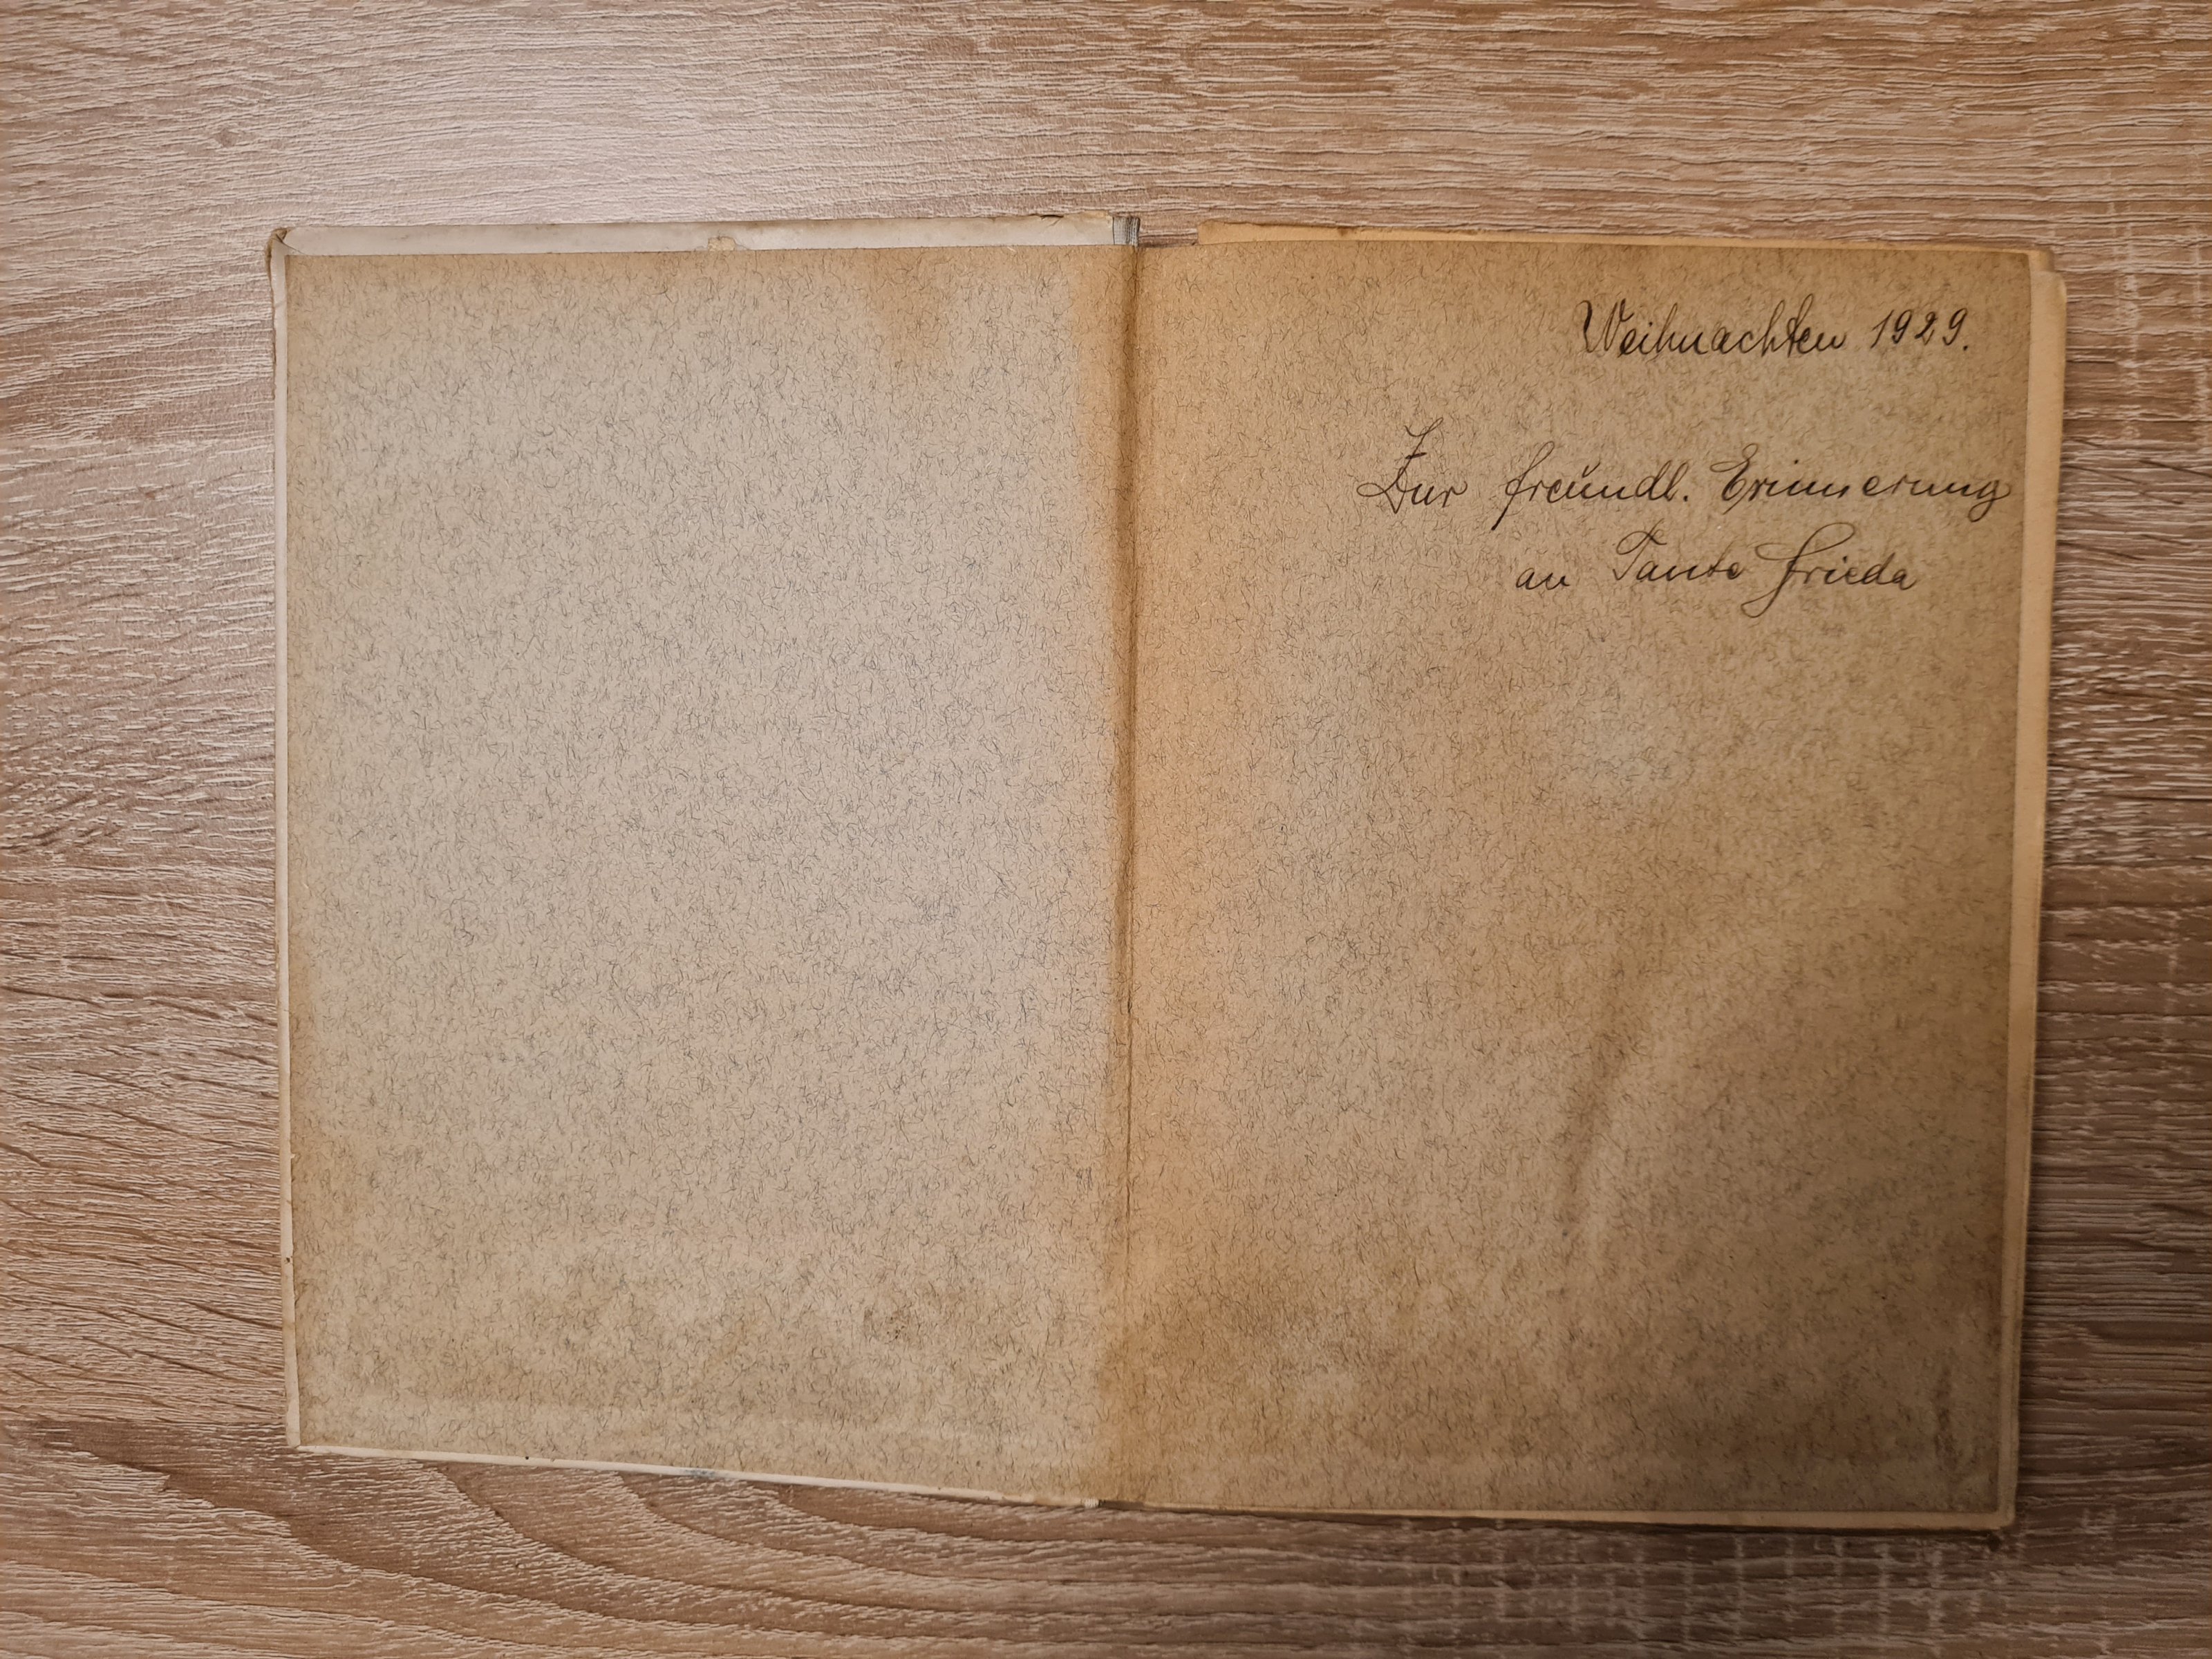 Weihnachten 1929.
Zur freundl. Erinnerung
an Tante Frieda